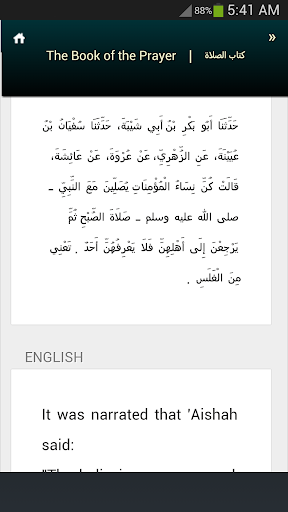 88% 5:41 AM
The Book of the Prayer | كتاب الصلاة »
حَدَّثَنَا أَبُو بَكْرِ بْنُ أَبِي شَيْبَةَ، حَدَّثَنَا سُفْيَانُ بْنُ
عُيَيْنَةَ، عَنِ الزُّهْرِيِّ، عَنْ عُرْوَةَ، عَنْ عَائِشَةَ،
قَالَتْ كُنَّ نِسَاءُ الْمُؤْمِنَاتِ يُصَلِّينَ مَعَ النَّبِيِّ ـ
صلى الله عليه وسلم ـ صَلاَةَ الصُّبْحِ ثُمَّ
يَرْجِعْنَ إِلَى أَهْلِهِنَّ فَلاَ يَعْرِفُهُنَّ أَحَدٌ . تَعْنِي
مِنَ الْغَلَسِ .
ENGLISH
It was narrated that 'Aishah
said: